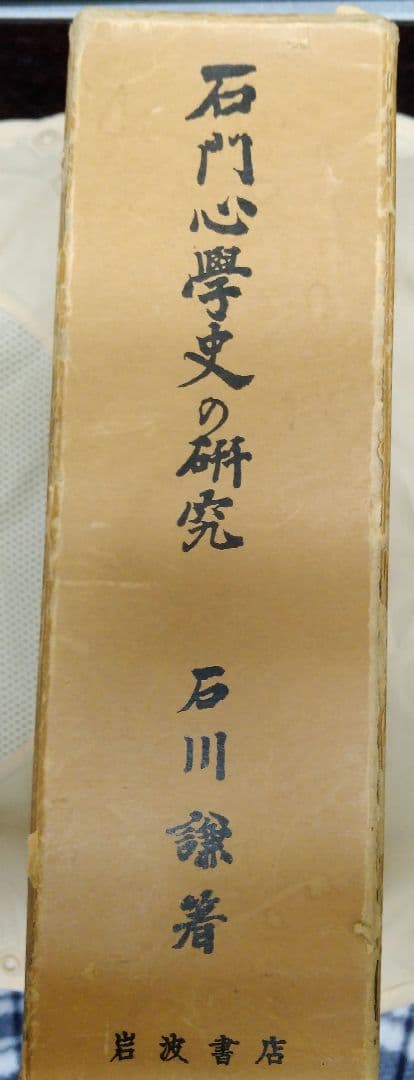 石門心學史の硏究
石川謙著
岩波書店